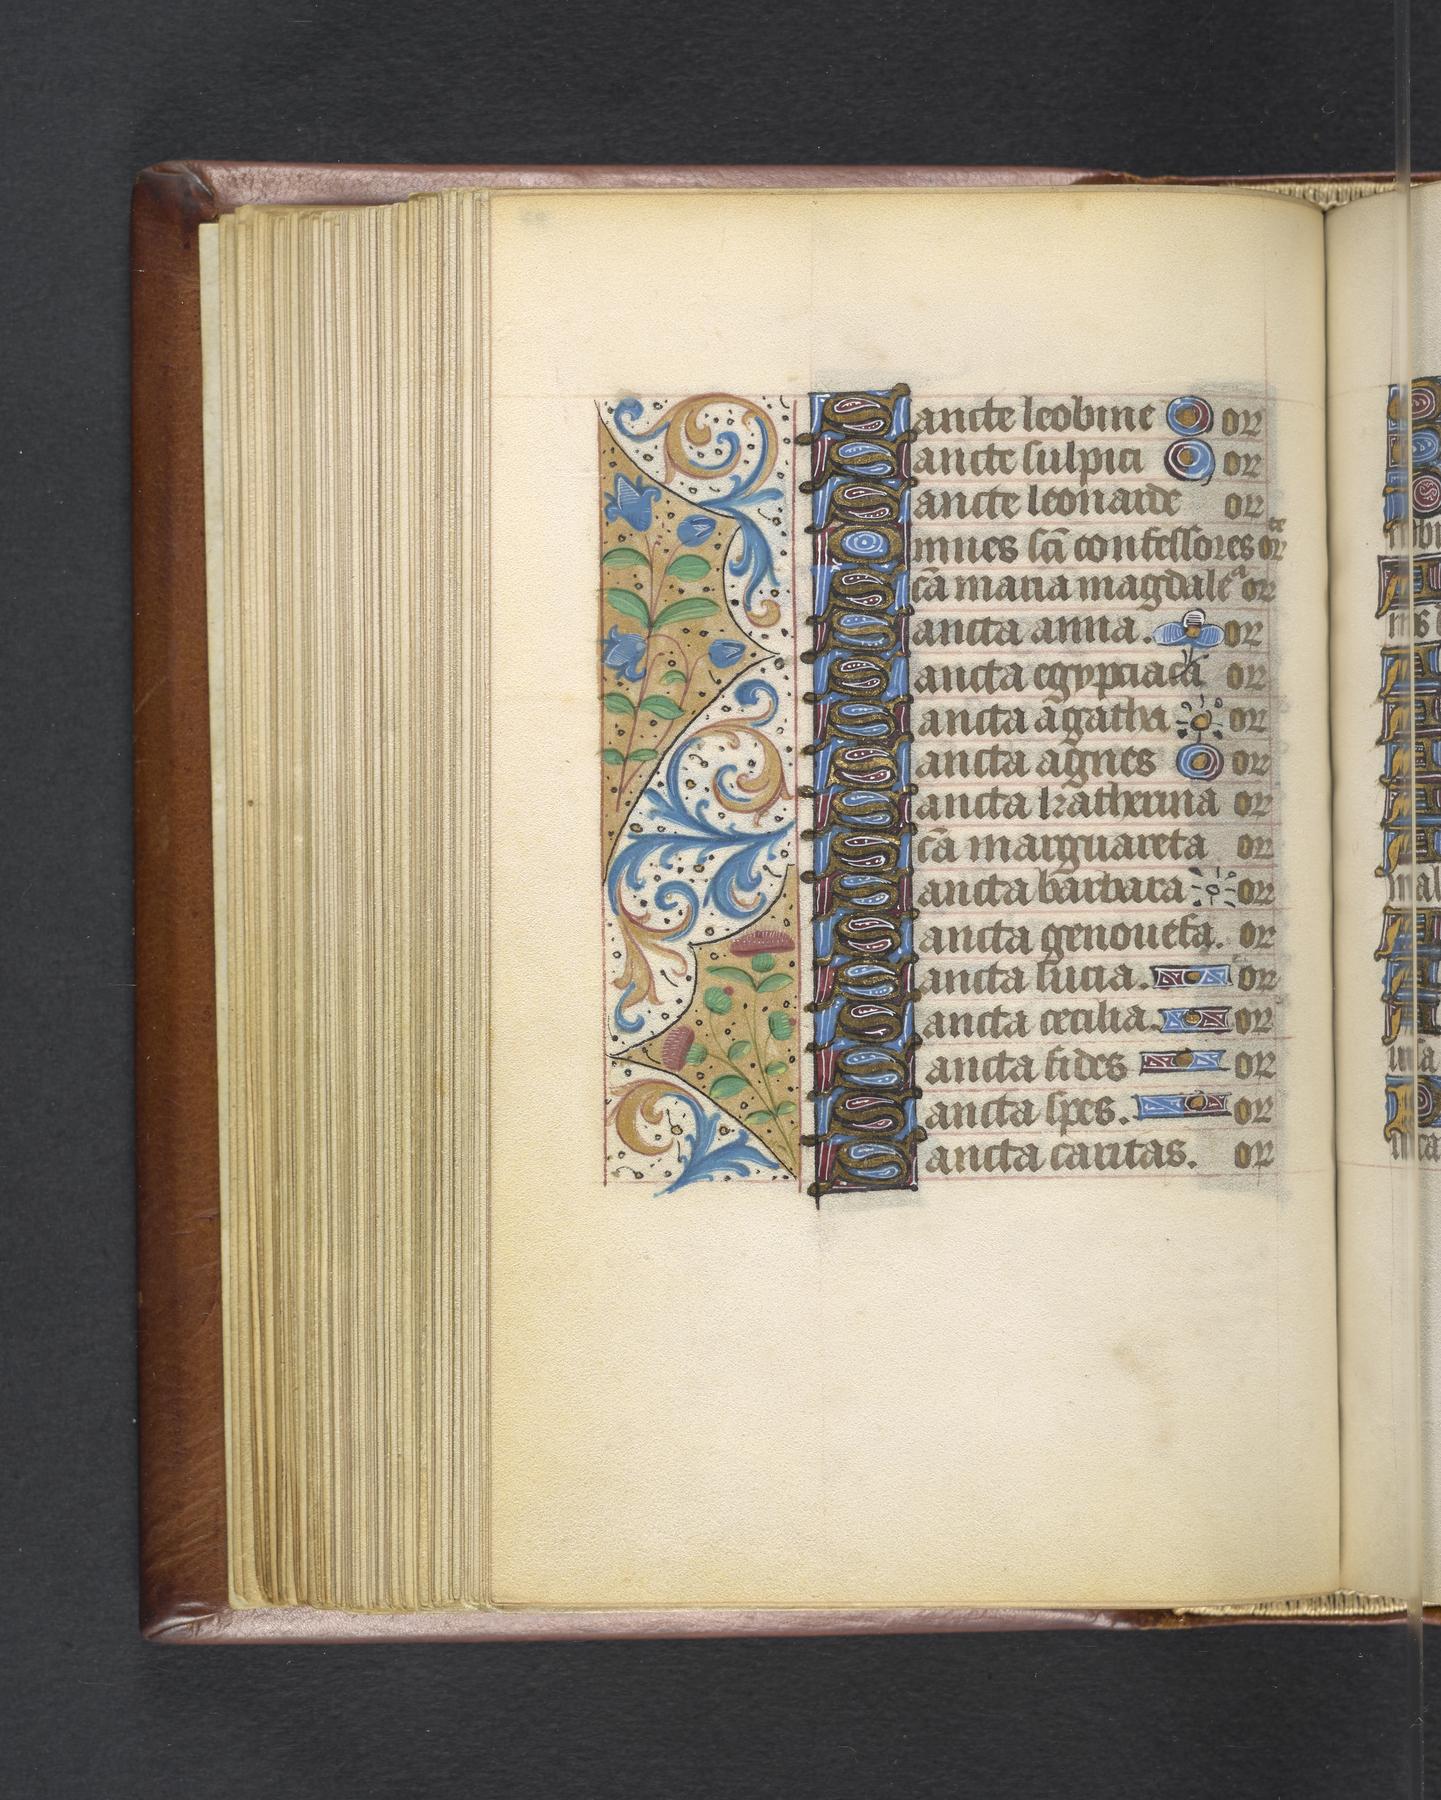 Sancte leobine or
Sancte sulpici or
Sancte leonarde or
Omnes sc̄i confessores orᵗᵉ
Sc̄a maria magdaleᵃ or
Sancta anna. or
Sancta egypciaca or
Sancta agatha or
Sancta agnes or
Sancta katherina or
Sc̄a marguareta or
Sancta barbara or
Sancta genouefa. or
Sancta lucia. or
Sancta cecilia. or
Sancta fides or
Sancta spes. or
Sancta caritas. or